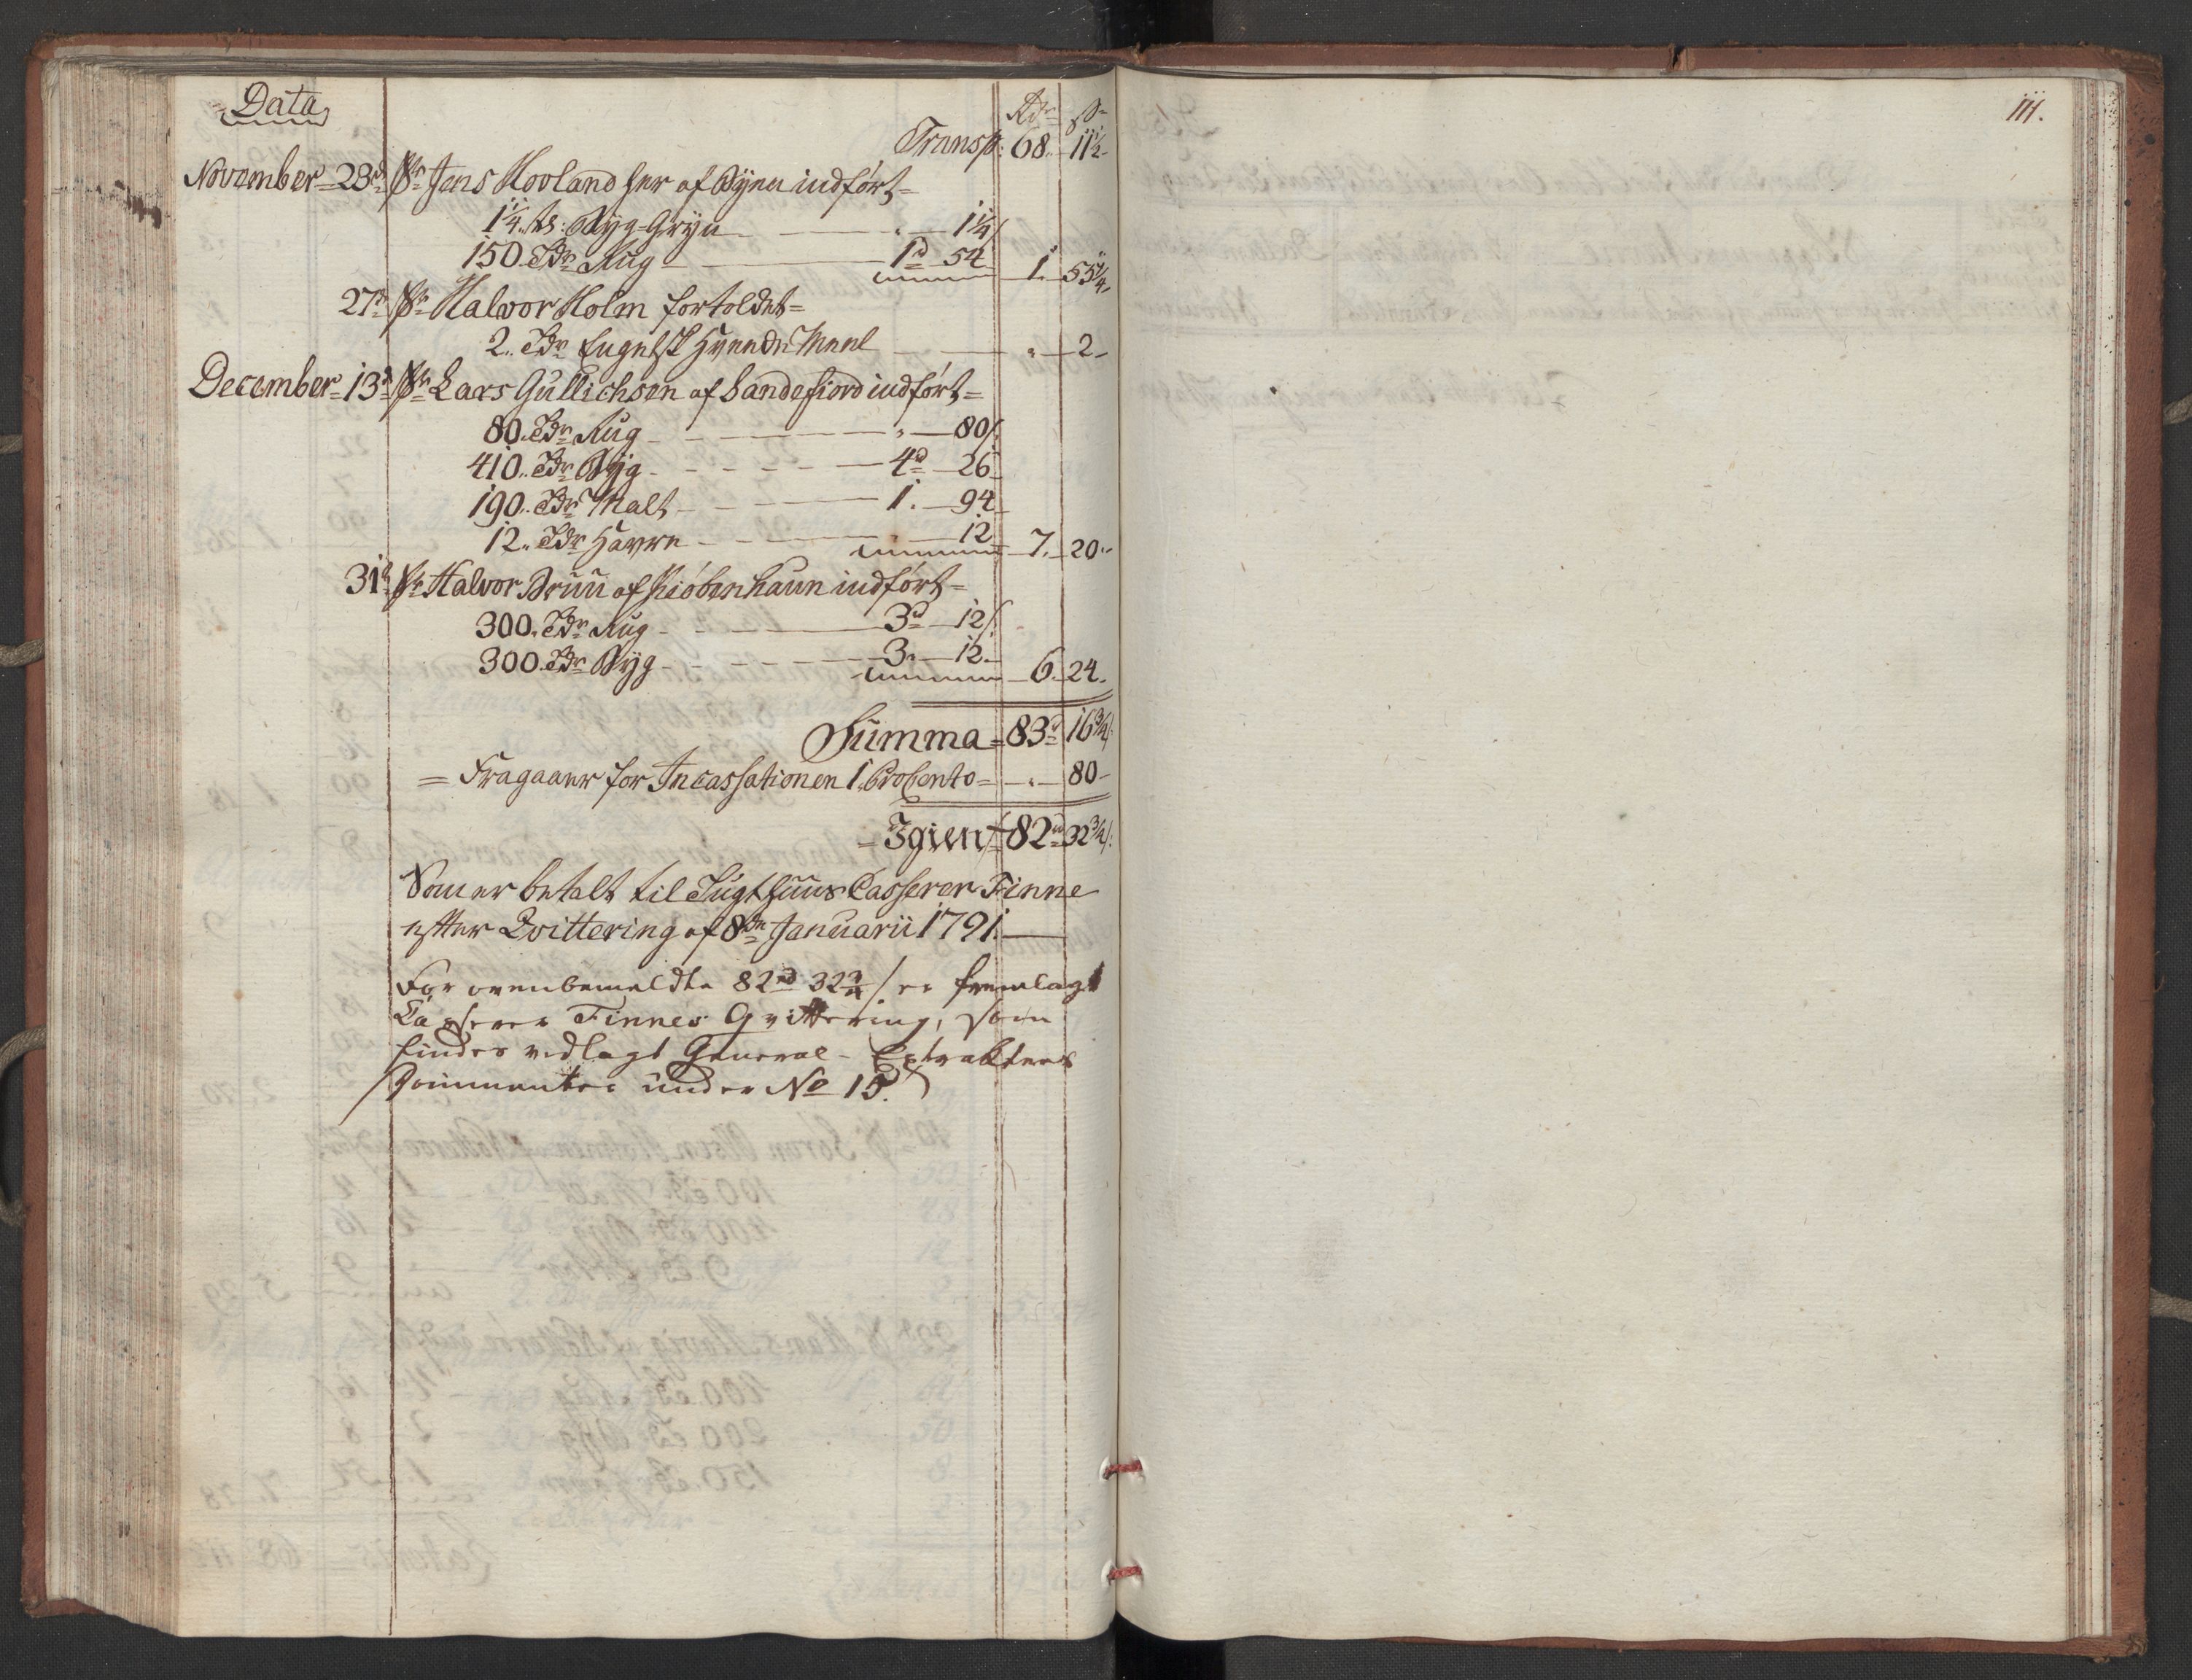 Data
Rdr ß
Transp: 68. 11½
November 23d Sr Jens Hovland her af Byen indført
1¼ td: Byg-Gryn „ 1¼ ß
150 Tdr Rug 1d 54 1. 55¼
27d Sr Halvor Holm fortoldet
2. Tdr Engelsk Hvede Meel „ 2
December 13d Sr Lars Gullichsen af Sandefiord indført
80. Tdr Rug „ 80 ß
410. Tdr Byg 4d 26
190. Tdr Malt 1. 94
12. Tdr Havre „ 12 7. 20
31d Sr Halvor Bruu af Kiøbenhavn indført
300. Tdr Rug 3d 12 ß
300. Tdr Byg 3. 12. 6. 24.
Summa 83d 16¾ ß
Fragaaer for Incassationen 1. ProCento „ 80
Igien 82d 32¾ ß
Som er betalt til Tugthuus Casserer Finne
efter Qvittering af 8de Januarii 1791.
For ovenbemeldte 82rd 32¾ ß er fremlagt
Casserer Finnes Qvittering, som
findes vedlagt General-Extractens
Documenter under No 15.
111.